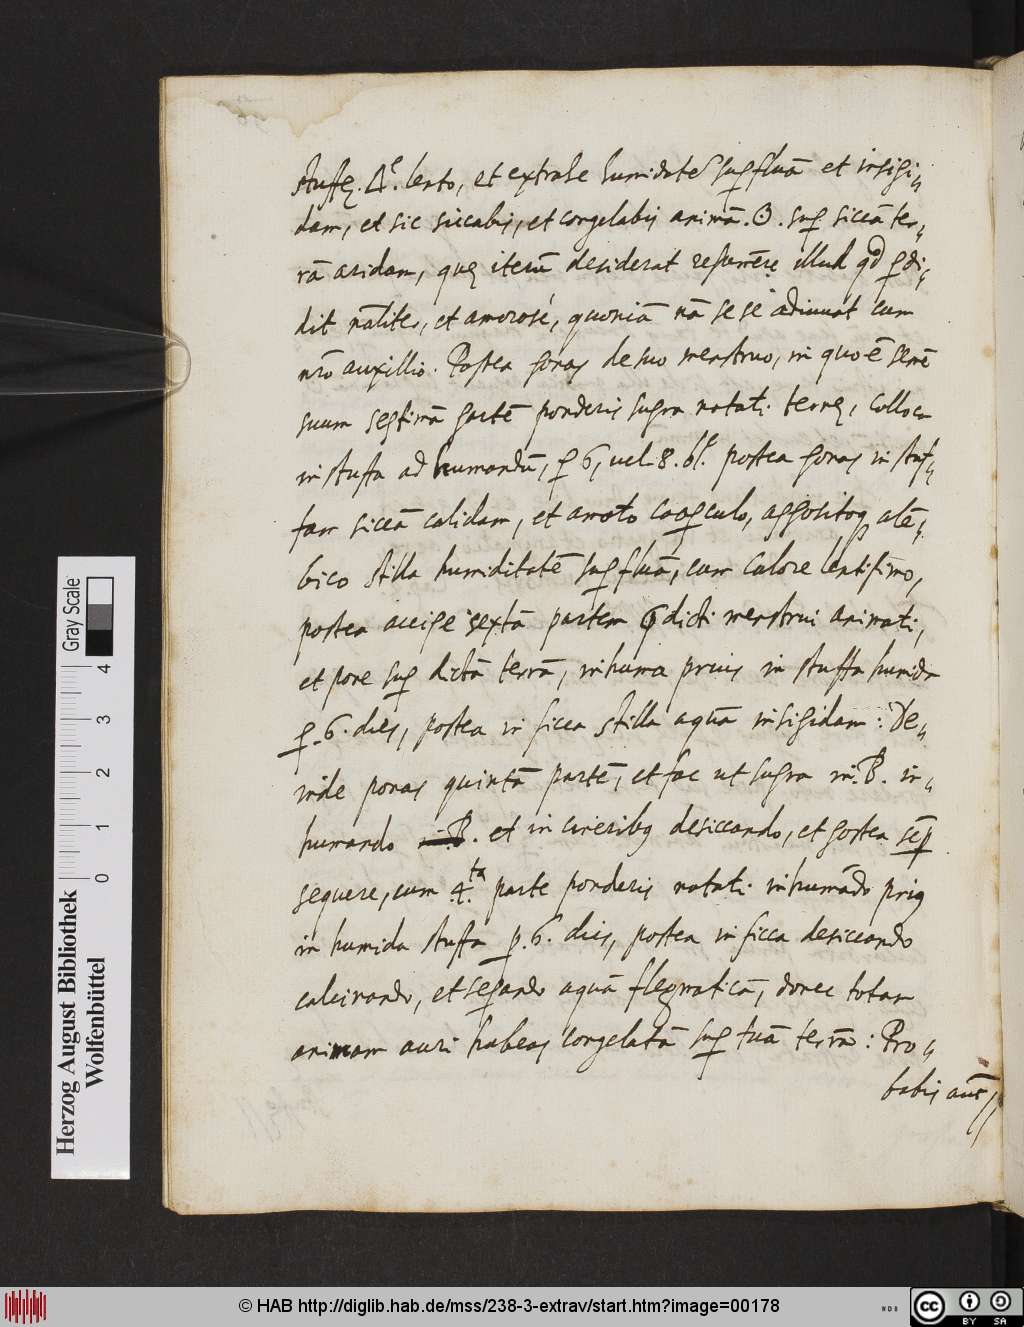 stuffę. 🜂e. lento, et extrahe humidatē suꝑfluā et insipi„
dam, et sic siccabis, et congelabis animā. ☉. suꝑ siccā ter„
rā aridam, quę iterū desiderat resumere illud qd ꝑdi„
dit nāliter, et amorosé, quoniā nā se se adiuuat cum
nr̄o auxillio. Postea ponas de suo menstruo, in quo ē semē
suum septimā partē ponderis supra notati terrę, colloca
in stuffa ad humandū, ꝑ 6, uel. 8. postea ponas in stuf„
fam siccā calidam, et amoto cooꝑculo, appositoqꝫ alē„
bico stilla humiditatē suꝑfluā, cum calore lentissimo,
postea accipe sextā partem dicti menstrui animati,
et pone suꝑ dictā terrā, inhuma prius in stuffa humida
ꝑ. 6. dies, postea in sicca stilla aquā insipidam: De„
inde ponas quintā partē, et fac ut supra in. B. in„
humando et in cineribꝫ desiccando, et postea sēꝑ
sequere, cum .4.ta parte ponderis notati inhumādo priꝰ
in humida stuffa ꝑ. 6. dies, postea in sicca desiccando
calcinando, et seꝑando aquā flegmaticā, donec totam
animam auri habeas congelatā suꝑ tuā terrā: Pro„
babis aūt
Herzog August Bibliothek
Wolfenbüttel
0 1 2 3 4
Gray Scale
© HAB http://diglib.hab.de/mss/238-3-extrav/start.htm?image=00178
cc BY SA